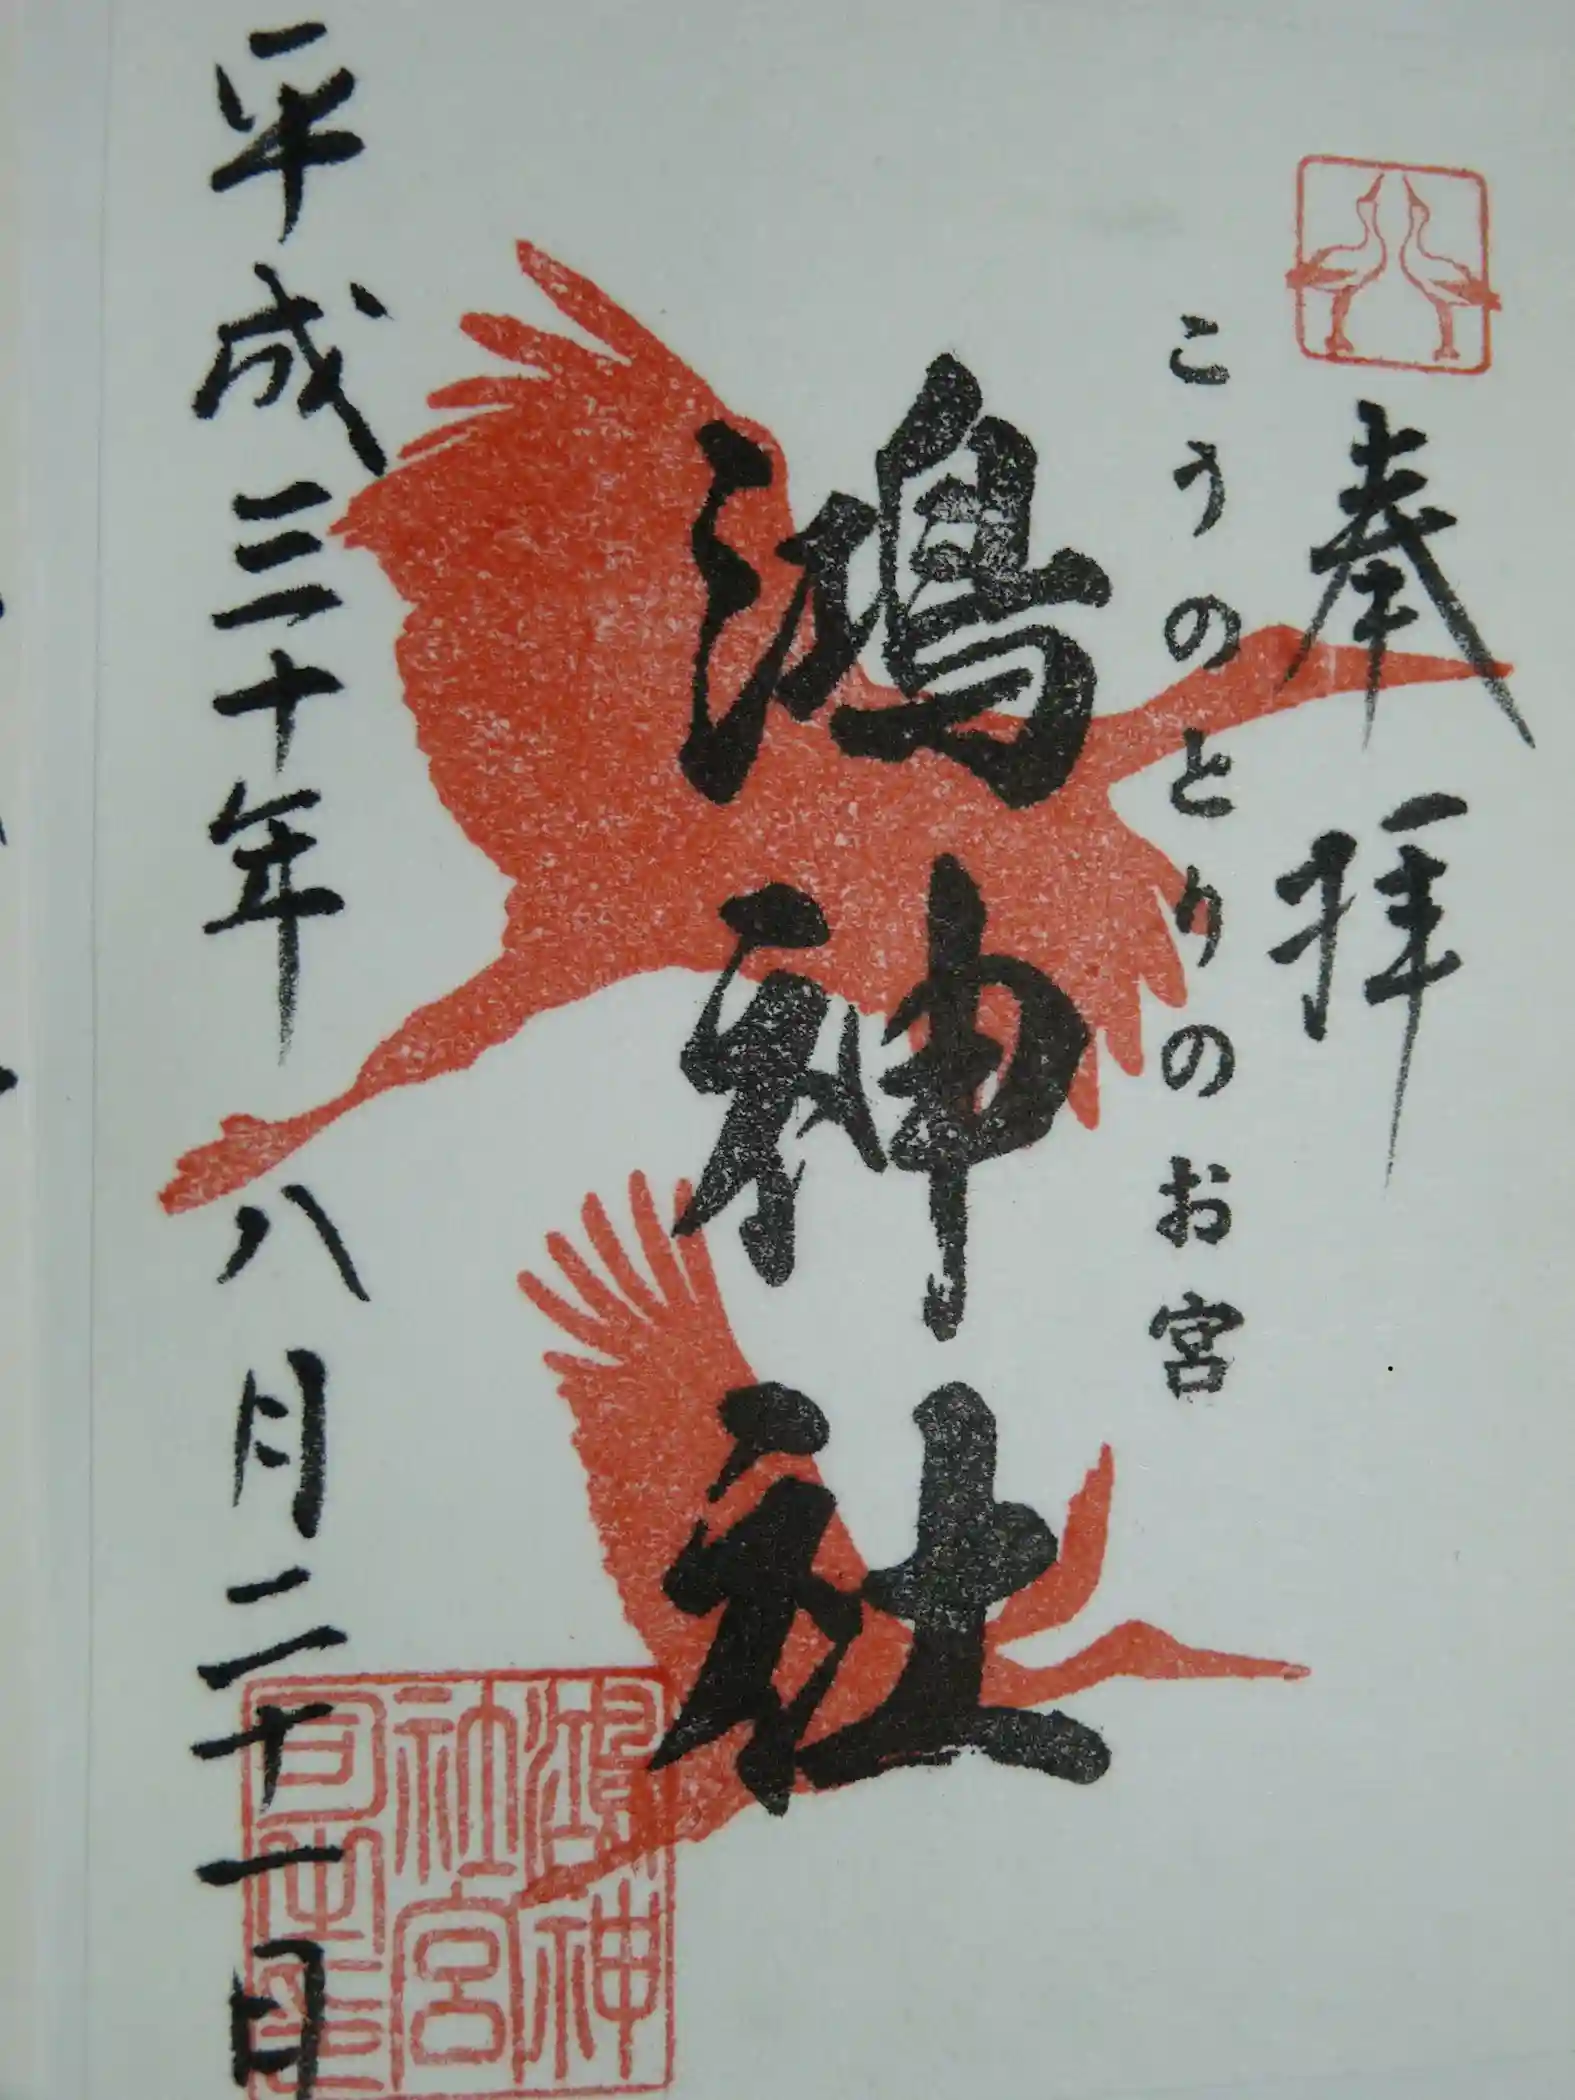 奉拝
こうのとりのお宮
鴻神社
平成三十年八月二十一日
鴻神
社宮
司之印